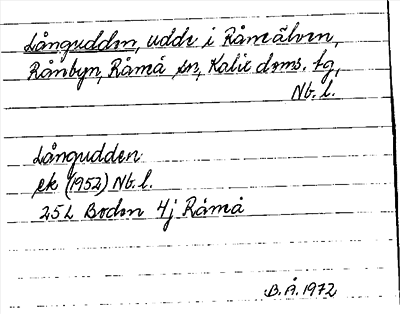 Långudden, udde i Råneälven,
Rånbyn, Råneå sn, Kalix doms. tg,
Nb. l.
Långudden
ek (1952) Nb. l.
25 L Boden 4j Råneå
B. Å. 1972